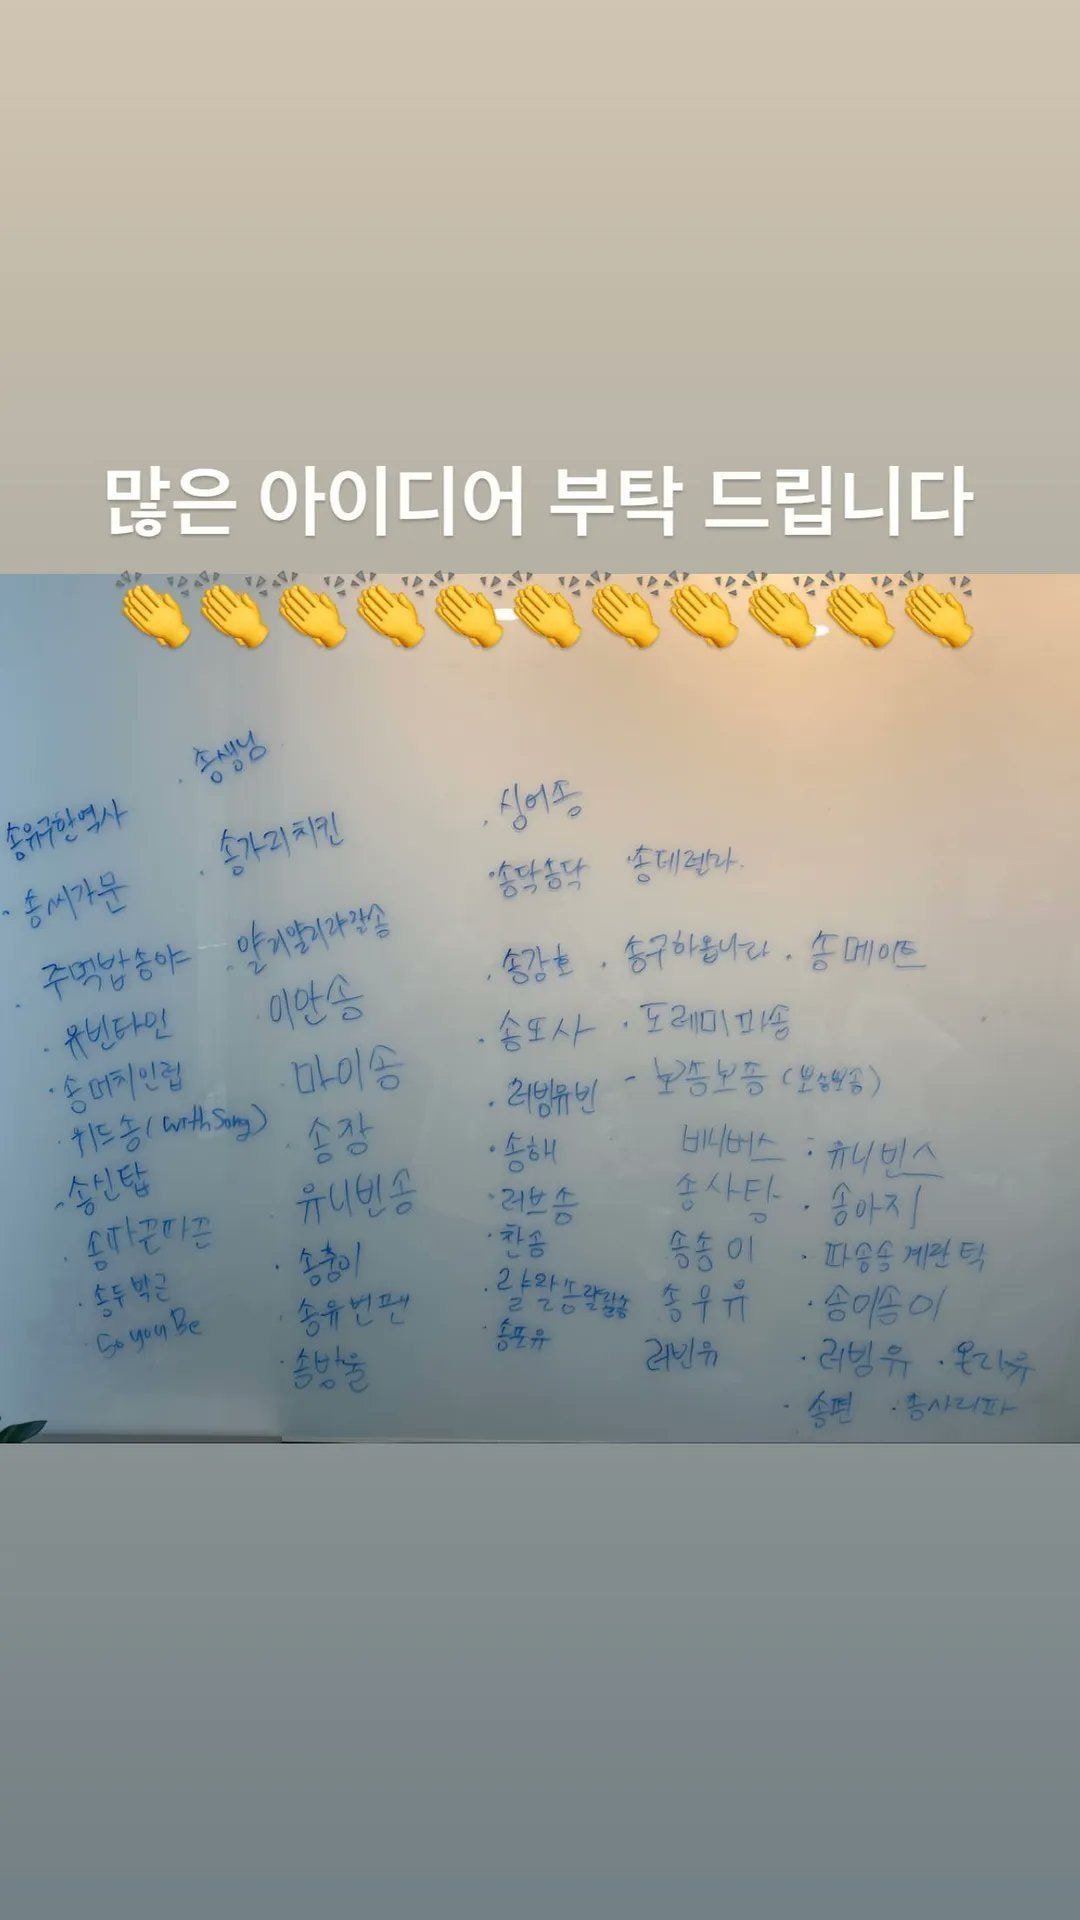 많은 아이디어 부탁 드립니다
👏👏👏👏👏👏👏👏👏👏👏
· 송생님
송유구한역사
· 송가리치킨
· 송씨가문
· 얄리얄리랴랄송
· 주먹밥송야
이안송
· 유빈타인
· 마이송
· 송머치인럽
· 송장
· 위드송(with Song)
유니빈송
· 송신탑
· 송충이
· 송따끈따끈
· 송유번펜
· 송두박근
· 송방울
· So you Be
· 싱어송
· 송닥송닥 · 송데렐라
· 송강호 · 송구하옵니다 · 송메이트
· 송포사 · 도레미파송
· 러빙유빈 - 뽀송뽀송 (뽀송뽀송)
· 송해 비니버스 : 유니빈스
· 러브송 송사탕 · 송아지
· 찬송 송송이 · 파송송계란탁
송우유 · 송이송이
· 송포유 러빈유 · 러빙유 · 온리유
· 송편 · 송사리파